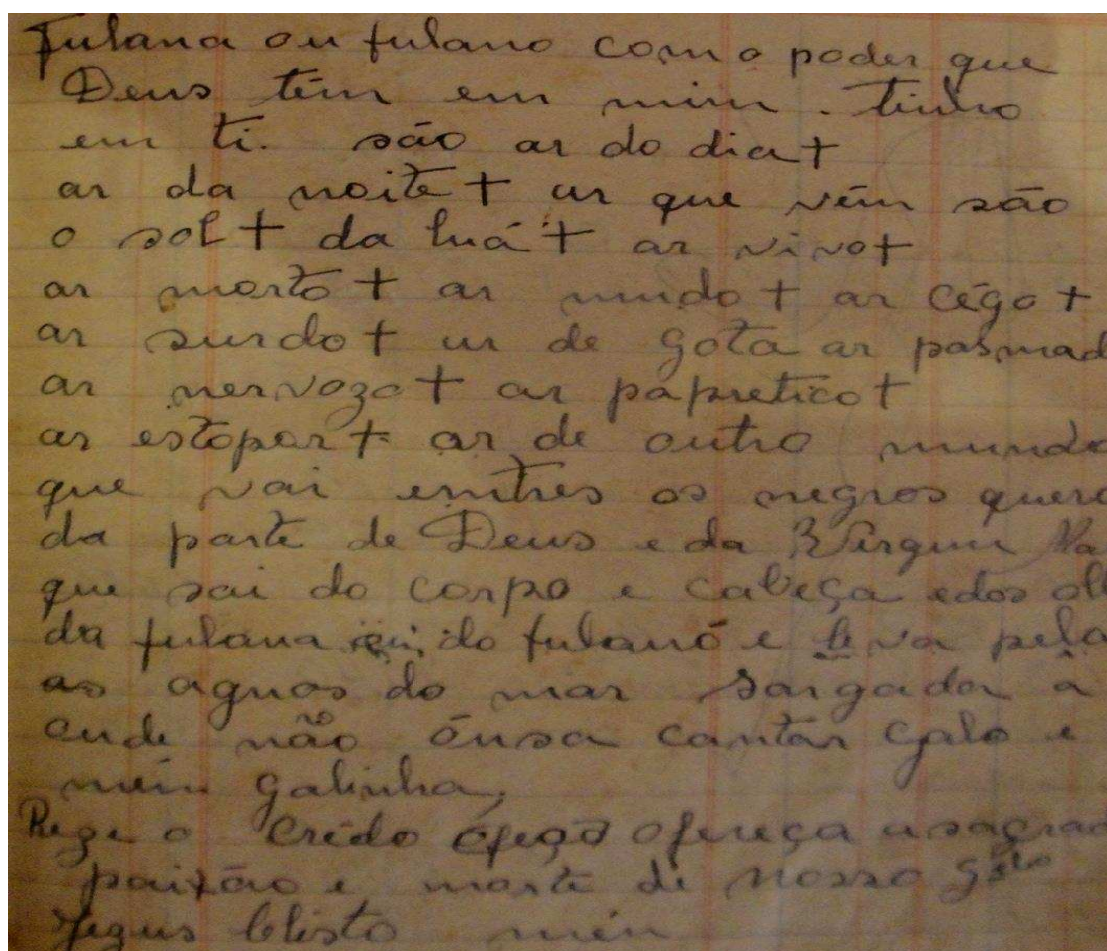 Fulana ou fulano com o poder que
Deus têm em mim. tinho
em ti. são ar do dia+
ar da noite+ ar que vêm são
o sol+ da luá+ ar vivo+
ar morto+ ar mudo+ ar cégo+
ar surdo+ ar de gota ar pasmad
ar nervozo+ ar papretico+
ar estopor+ ar de outro mundo
que vai emtres os negros quero
da parte de Deus e da Virgem Ma
que sai do corpo e cabeça edos olh
da fulana do fulanó e leva pela
as aguas do mar sargada a
onde não ousa cantar galo e
nein galinha,
Reze o Crédo ofereça asagrad
paixão e morte de nosso
Jezus Clisto mén